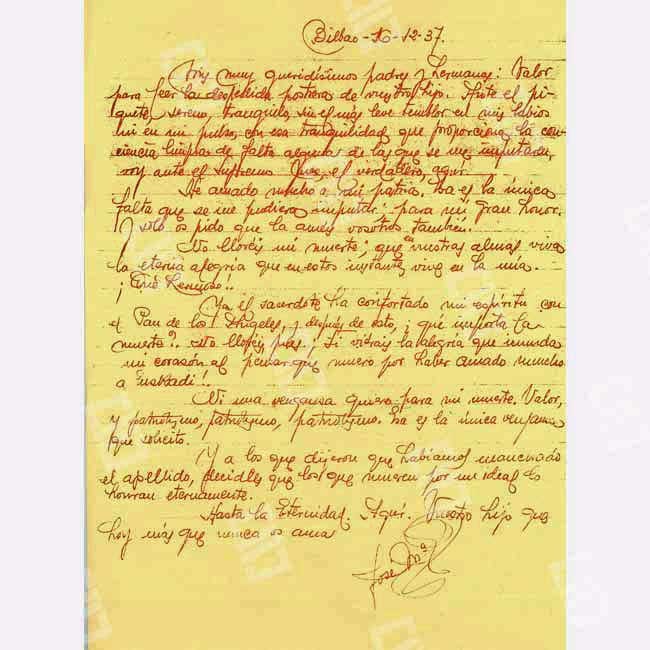 Bilbao-16-12-37.
Mis muy queridísimos padres y hermanas: Valor
para leer la despedida postrera de vuestro hijo. Ante el pi-
quete, sereno, tranquilo, sin el más leve temblor en mis labios
ni en mi pulso, con esa tranquilidad que proporciona la con-
ciencia limpia de falta alguna de las que se me imputaran,
voy ante el Supremo Juez, el verdadero, agur.
He amado mucho a mi patria. Esa es la única
falta que se me pudiera imputar; para mí, gran honor.
Y sólo os pido que la améis vosotros también.
No lloréis mi muerte; que en vuestras almas viva
la eterna alegría que en estos instantes vive en la mía.
¡Qué hermoso!.
Ya el sacerdote ha confortado mi espíritu con
el Pan de los Angeles, y después de esto, ¿qué importa la
muerte?. No lloréis, pues. ¡Si vierais la alegría que inunda
mi corazón al pensar que muero por haber amado mucho
a Euzkadi!.
Ni una venganza quiero para mi muerte. Valor,
y patriotismo, patriotismo, patriotismo. Esa es la única venganza
que solicito.
Y a los que dijeron que habíamos manchado
el apellido, decidles que los que mueren por un ideal lo
honran eternamente.
Hasta la Eternidad. Agur. Vuestro hijo que
hoy más que nunca os ama
José Mª